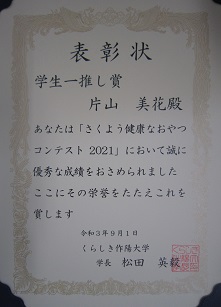 表彰状
学生一推し賞
片山 美花殿
あなたは「さくよう健康なおやつ
コンテスト 2021」において誠に
優秀な成績をおさめられました
ここにその栄誉をたたえこれを
賞します
令和3年9月1日
くらしき作陽大学
学長 松田 英毅